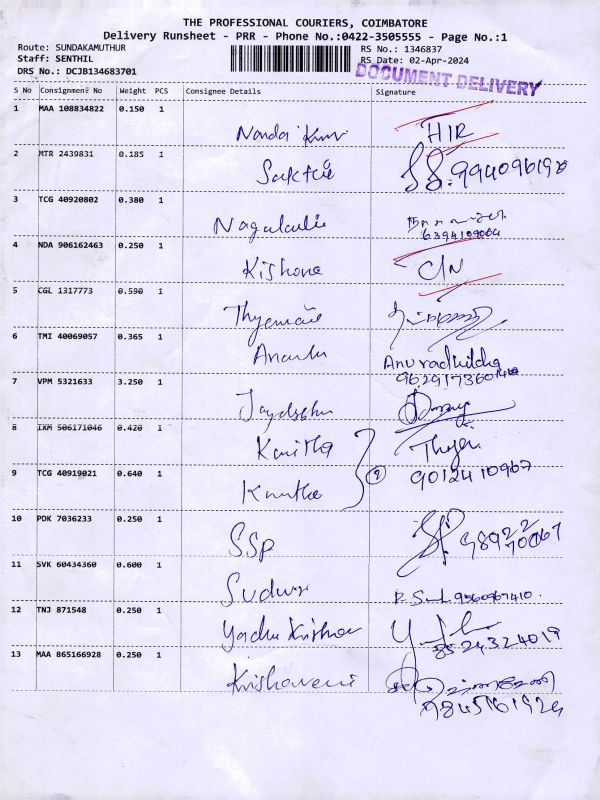 THE PROFESSIONAL COURIERS, COIMBATORE
Delivery Runsheet - PRR - Phone No.:0422-3505555 - Page No.:1
Route: SUNDAKAMUTHUR
RS No.: 1346837
Staff: SENTHIL
RS Date: 02-Apr-2024
DRS No.: DCJB134683701
DOCUMENT DELIVERY
S No Consignment No Weight PCS Consignee Details Signature
1 MAA 108834822 0.150 1
Nanda Kumar H/R
2 MTR 2439831 0.185 1
Sakthi
3 TCG 40920802 0.380 1
6394109064
4 NDA 906162463 0.250 1
Kishore C/N
5 CGL 1317773 0.590 1
6 TMI 40069057 0.365 1
Anuradhildha
7 VPM 5321633 3.250 1
8 IXM 506171046 0.420 1
Kavitha
9 TCG 40919021 0.640 1
9012410967
Kavitha
10 PDK 7036233 0.250 1
SSP 98922
70067
11 SVK 60434360 0.600 1
9560967410
12 TNJ 871548 0.250 1
Yadhu Krishna
8524324019
13 MAA 865166928 0.250 1
Krishnaveni